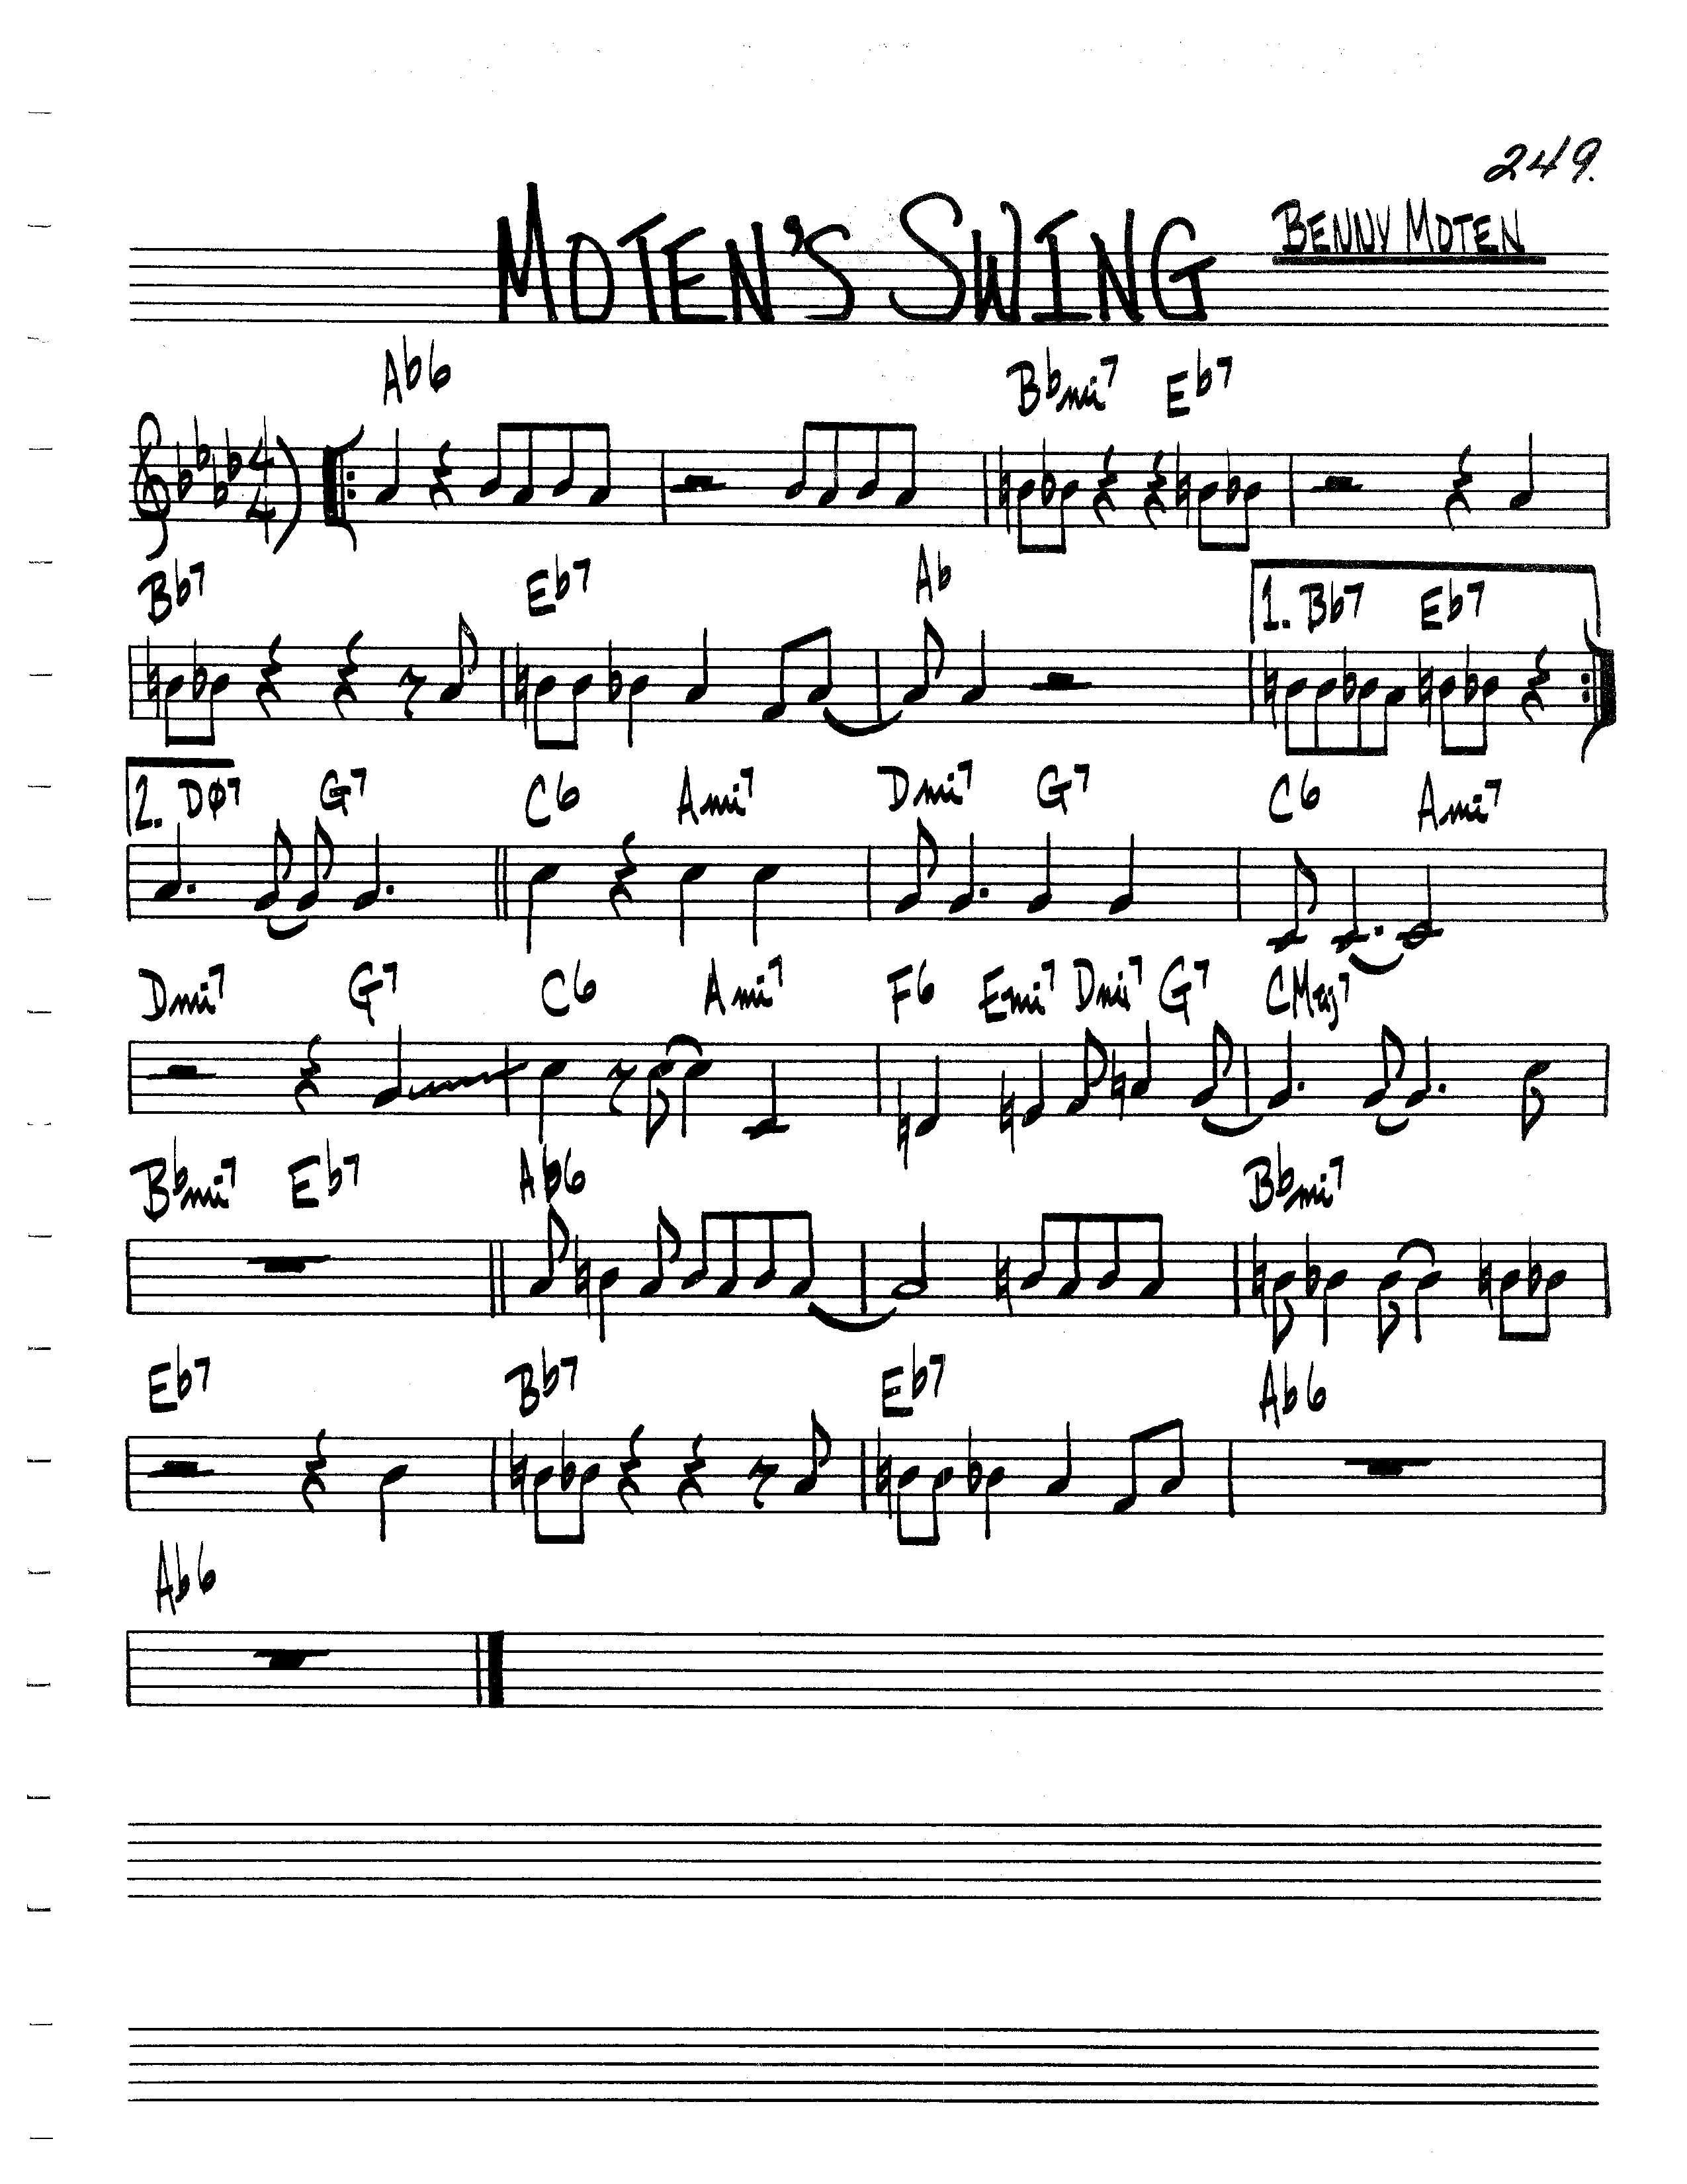 249.
MOTEN'S SWING
BENNY MOTEN
Ab6 Bbmi7 Eb7
4
4
Bb7 Eb7 Ab 1. Bb7 Eb7
2. DØ7 G7 C6 Ami7 Dmi7 G7 C6 Ami7
Dmi7 G7 C6 Ami7 F6 Emi7 Dmi7 G7 CMaj7
Bbmi7 Eb7 Ab6 Bbmi7
Eb7 Bb7 Eb7 Ab6
Ab6